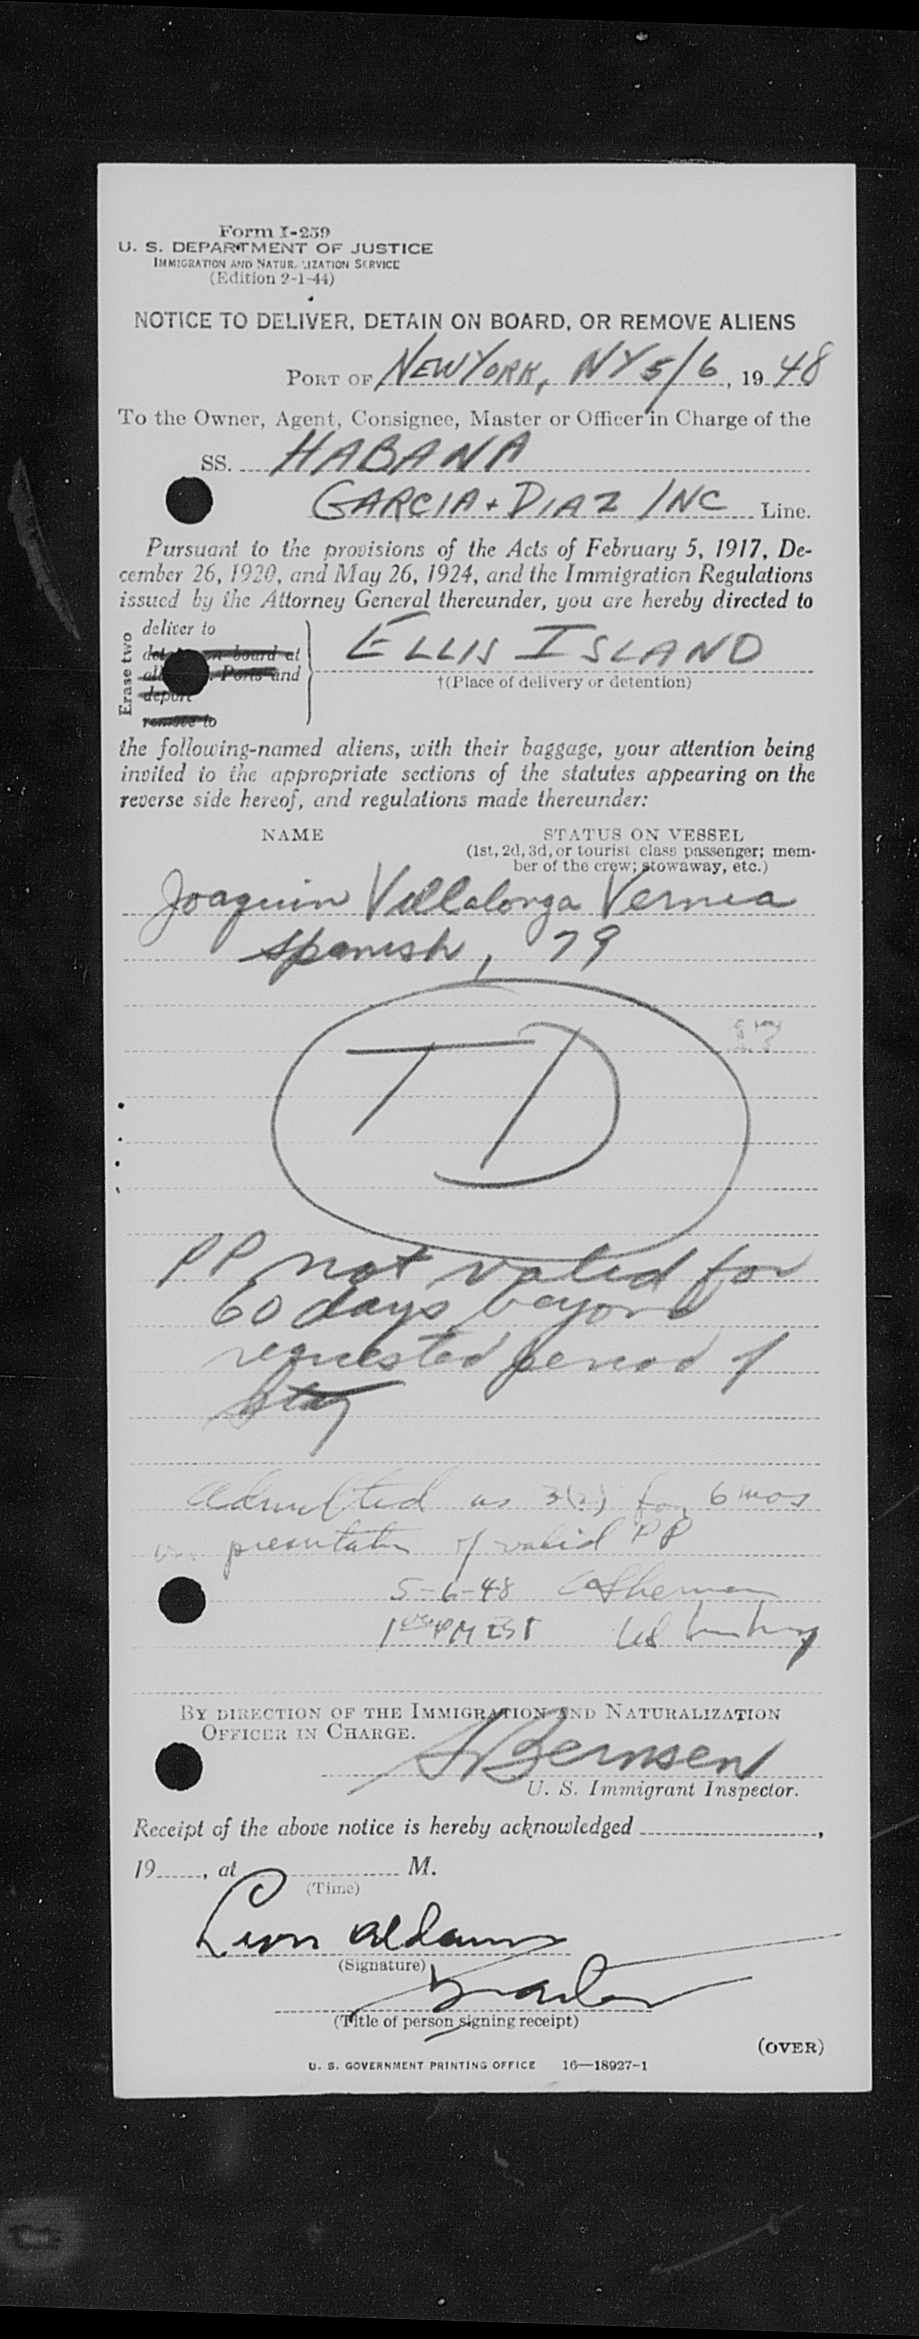 Form I-259
U. S. DEPARTMENT OF JUSTICE
IMMIGRATION AND NATURALIZATION SERVICE
(Edition 2-1-44)
NOTICE TO DELIVER, DETAIN ON BOARD, OR REMOVE ALIENS
PORT OF NEW YORK, NY 5/6, 1948
To the Owner, Agent, Consignee, Master or Officer in Charge of the
SS. HABANA
GARCIA + DIAZ INC Line.
Pursuant to the provisions of the Acts of February 5, 1917, De-
cember 26, 1920, and May 26, 1924, and the Immigration Regulations
issued by the Attorney General thereunder, you are hereby directed to
Erase two
deliver to
on board at
Ports and
deport
remove to
ELLIS ISLAND
†(Place of delivery or detention)
the following-named aliens, with their baggage, your attention being
invited to the appropriate sections of the statutes appearing on the
reverse side hereof, and regulations made thereunder:
NAME STATUS ON VESSEL
(1st, 2d, 3d, or tourist class passenger; mem-
ber of the crew; stowaway, etc.)
Joaquin Villalonga Vernia
Spanish, 79
17
TD
PP not valid for
60 days beyond
requested period of
stay
Admitted as 3(2) for 6 mos
presentation of valid PP
5-6-48 Sherman
PM EST
BY DIRECTION OF THE IMMIGRATION AND NATURALIZATION
OFFICER IN CHARGE.
Bernsen
U. S. Immigrant Inspector.
Receipt of the above notice is hereby acknowledged ,
19 , at M.
(Time)
Leon Aldams
(Signature)
(Title of person signing receipt)
(OVER)
U. S. GOVERNMENT PRINTING OFFICE 16—18927-1